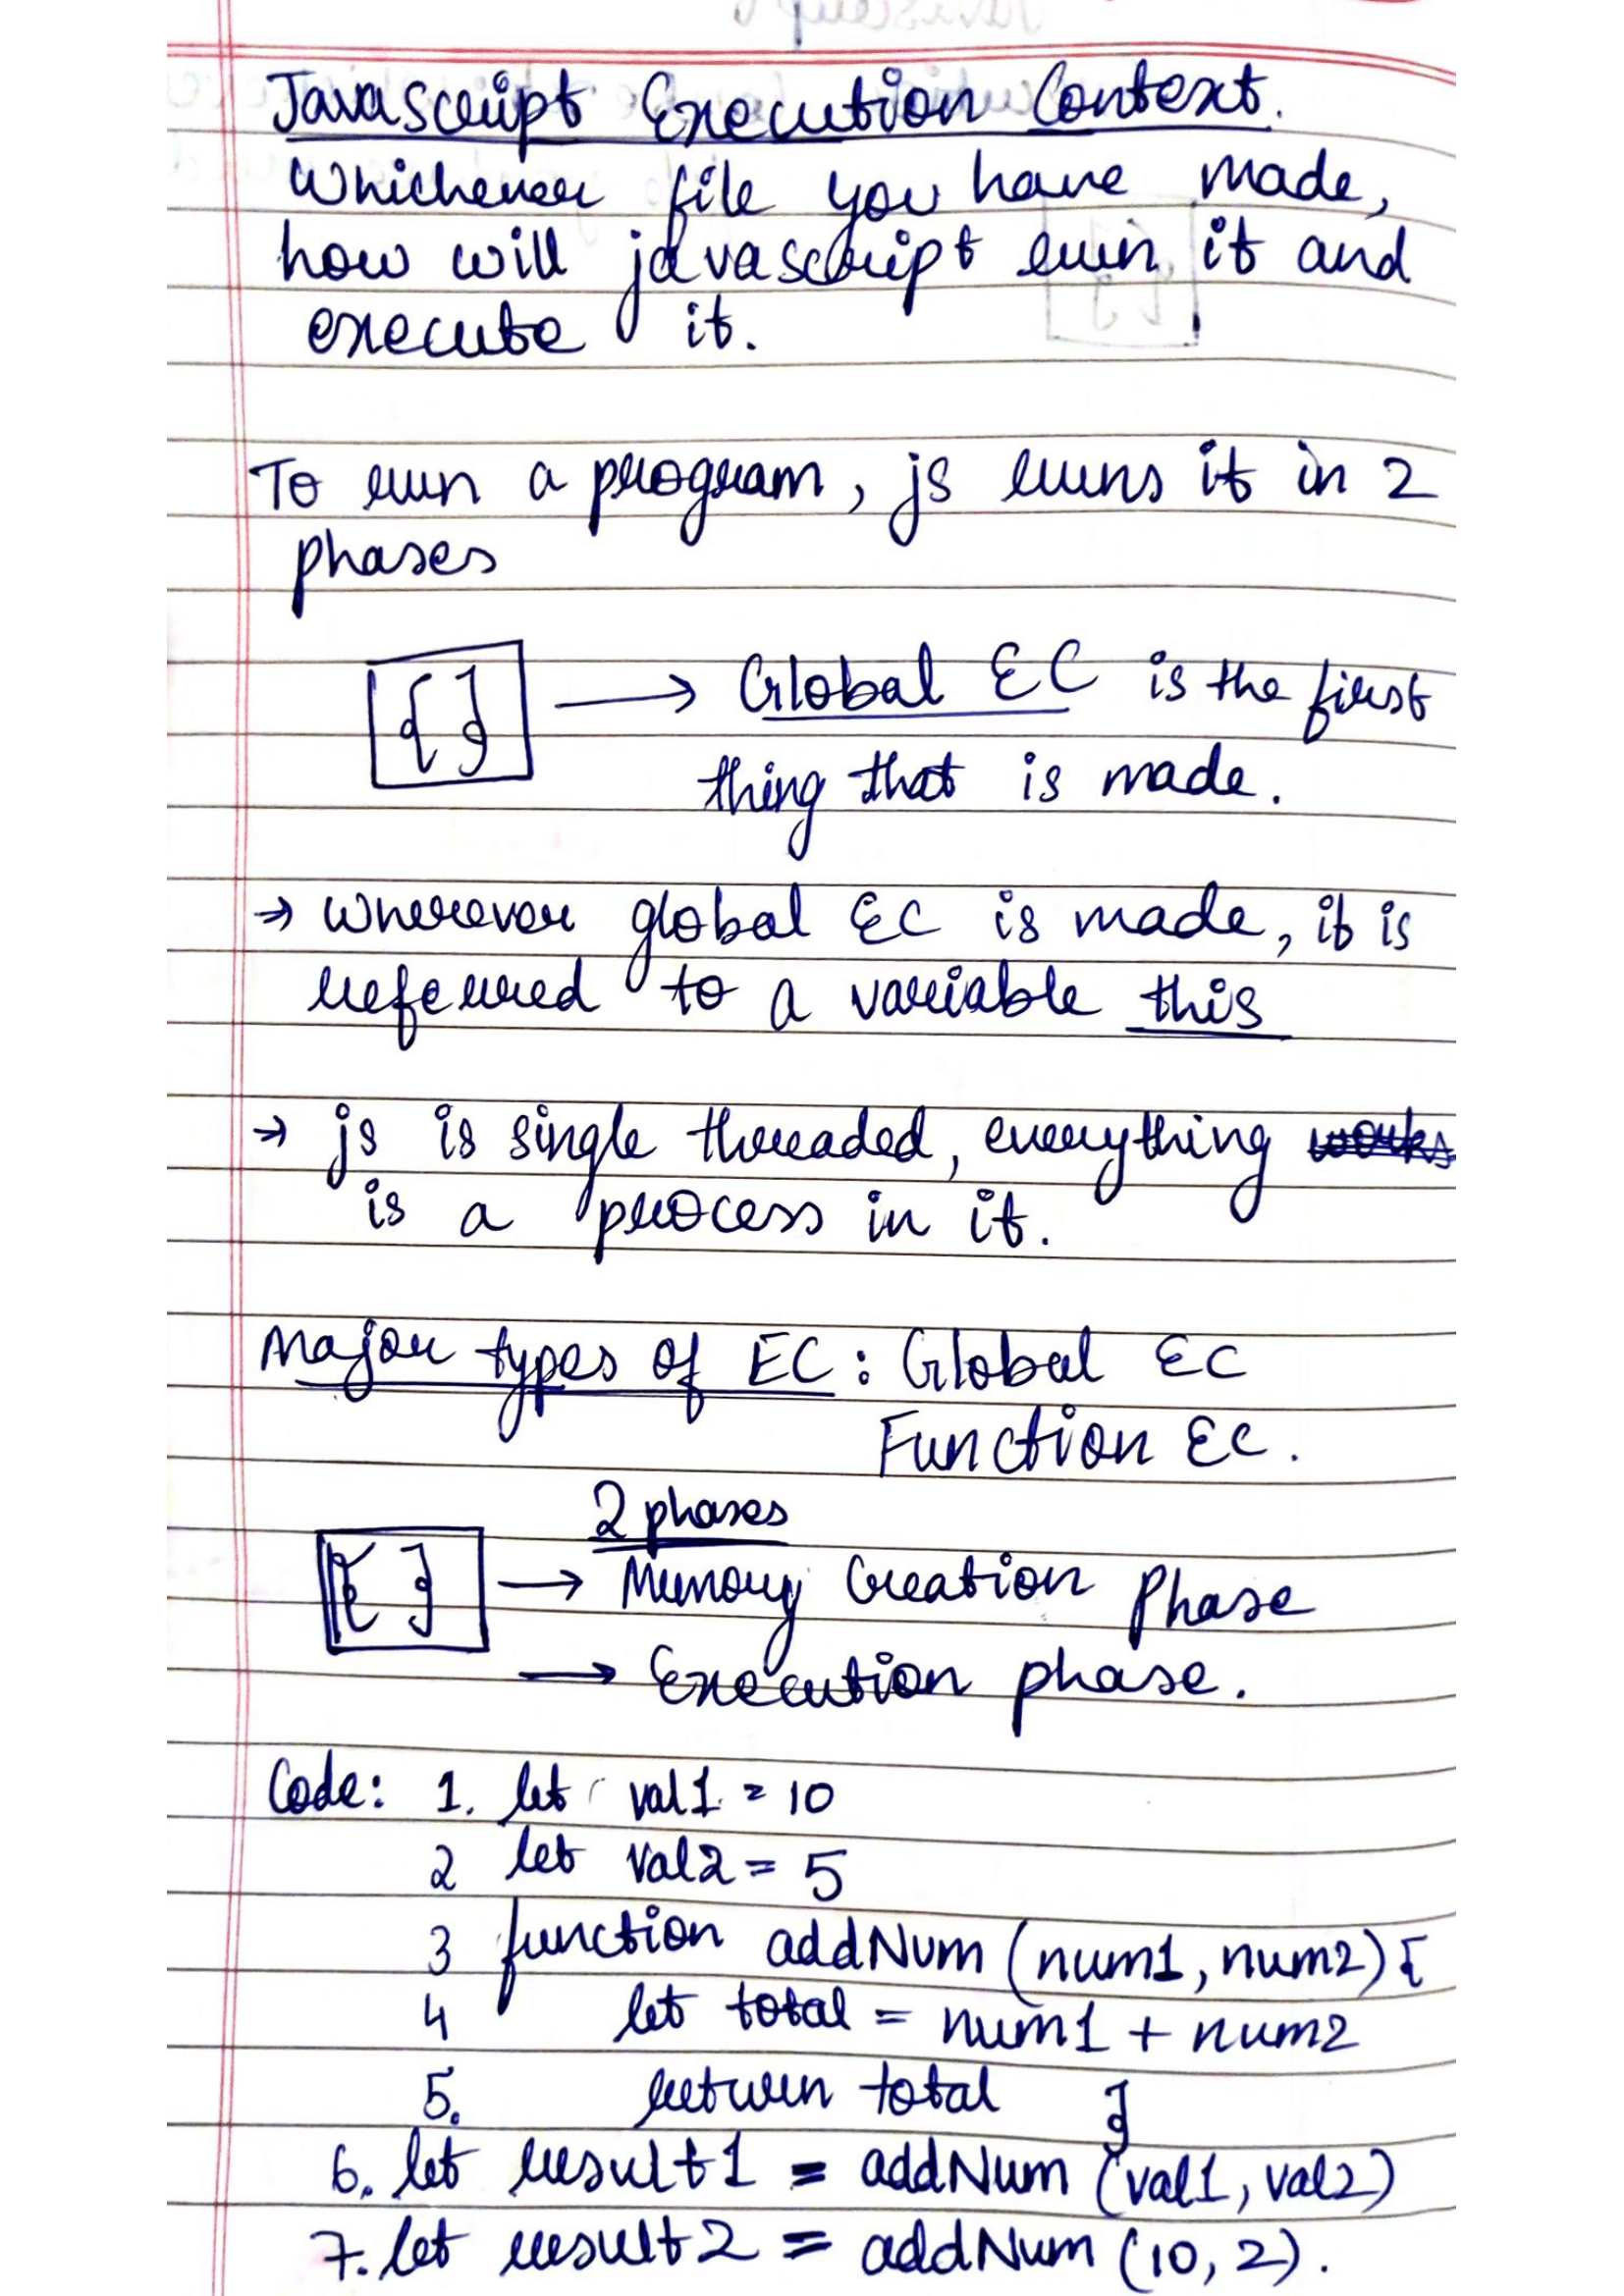 Javascript Execution Context.
Whichever file you have made,
how will javascript run it and
execute it.
To run a program, js runs it in 2
phases
{ } → Global EC is the first
thing that is made.
→ wherever global EC is made, it is
referred to a variable this
→ js is single threaded, everything works
is a process in it.
Major types of EC: Global EC
Function EC.
2 phases
{ } → Memory Creation Phase
→ Execution phase.
Code: 1. let val1 = 10
2 let val2 = 5
3 function addNum (num1, num2) {
4 let total = num1 + num2
5. return total }
6. let result1 = addNum (val1, val2)
7. let result2 = addNum (10, 2).